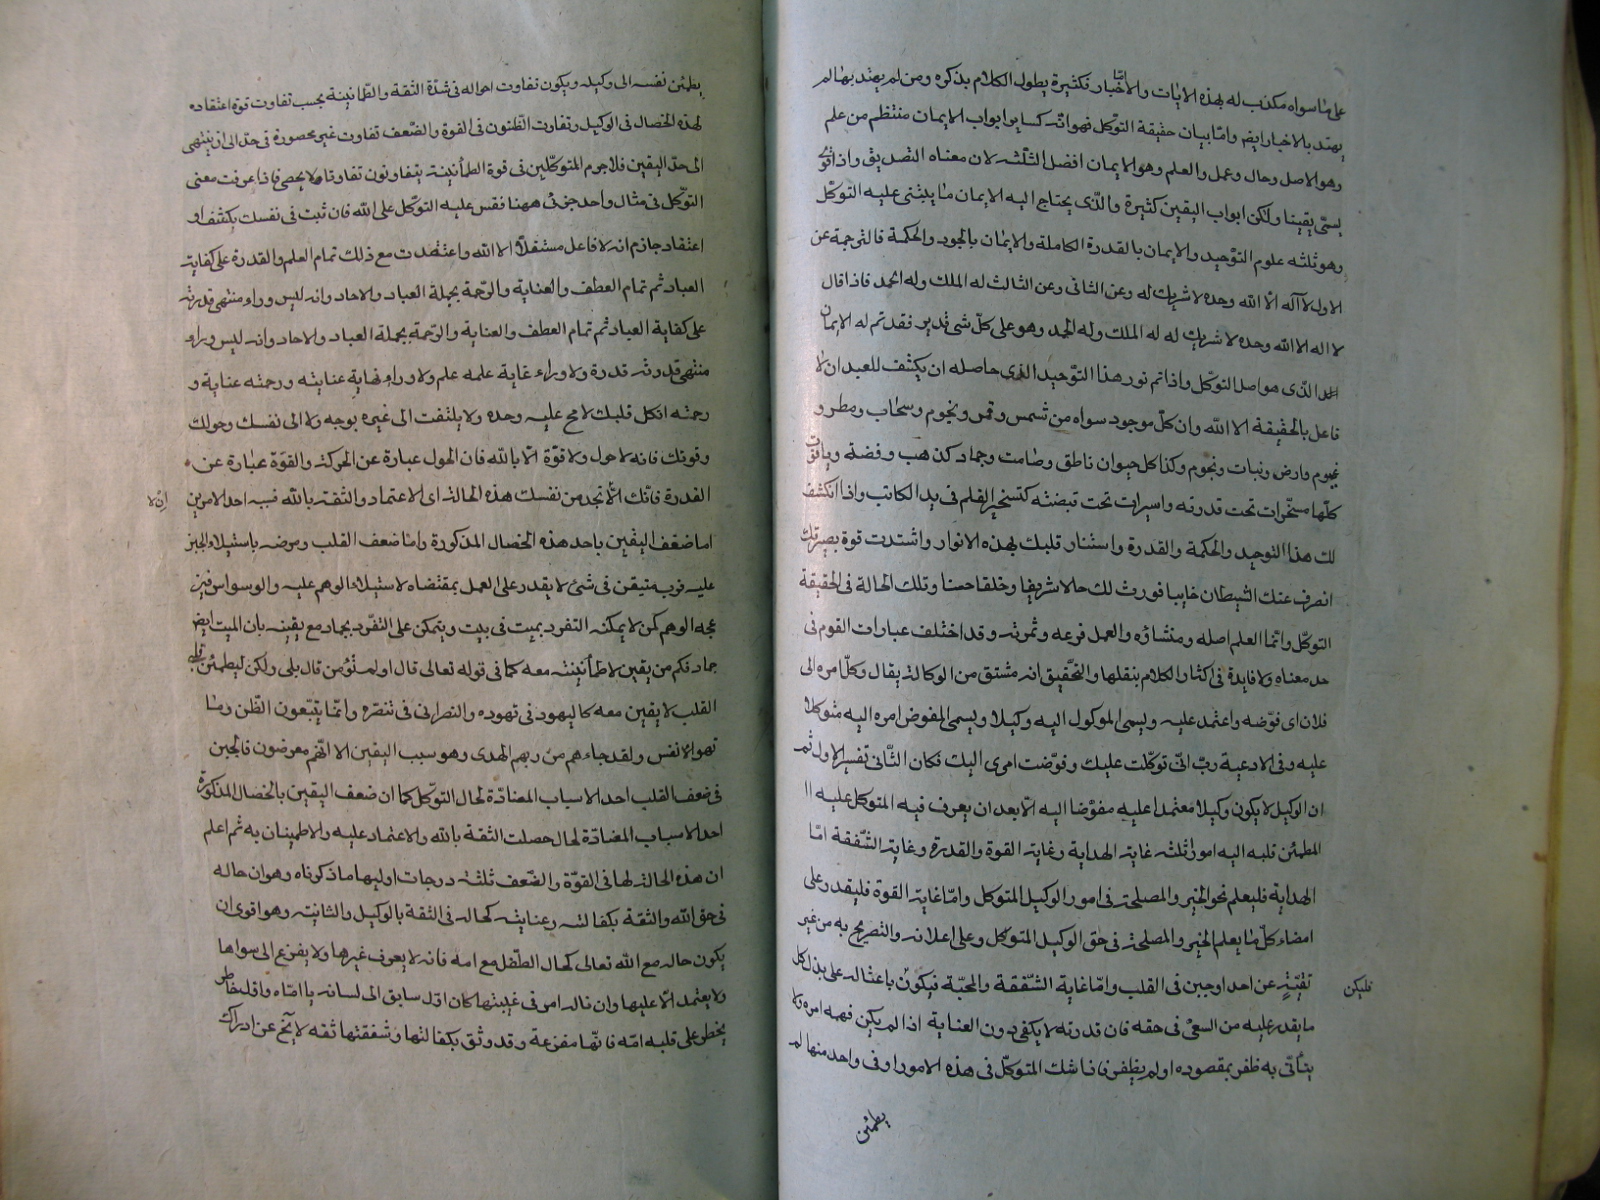 على ما سواه مكذب له بهذه الايات والاخبار فكثيرة يطول الكلام بذكره ومن لم يهتد بها لم
اما
يهتد بالاخبار ايض واما بيان حقيقة التوكل فهو انه كساير ابواب الايمان منتظم من علم
وهو الاصل وحال وعمل والعلم وهو الايمان افضل الثلثه لان معناه التصديق واذا قوى
يسمى يقينا ولكن ابواب اليقين كثيرة والذى يحتاج اليه الايمان ما يبتنى عليه التوكل
وهو ثلثه علوم التوحيد والايمان بالقدرة الكاملة والايمان بالجود والحكمة فالترجمة عن
الاول لا اله الا الله وحده لا شريك له وعن الثانى وعن الثالث له الملك وله الحمد فاذا قال
لا اله الا الله وحده لا شريك له له الملك وله الحمد وهو على كل شى قدير فقد تم له الايمان
الذى هو اصل التوكل واذا تم نور هذا التوحيد الذى حاصله ان يكشف للعبد ان لا
فاعل بالحقيقة الا الله وان كل موجود سواه من شمس وقمر ونجوم وسحاب ومطر و
غيوم وارض ونبات ونجوم وكذا كل حيوان ناطق وصامت وجماد كذهب وفضة وياقوت
كلها مسخرات تحت قدرته واسيرات تحت قبضته كتسخير القلم فى يد الكاتب واذا انكشف
لك هذا التوحيد والحكمة والقدرة واستنار قلبك بهذه الانوار واشتدت قوة بصيرتك
انصرف عنك الشيطان خايبا فورث لك حالا شريفا وخلقا حسنا وتلك الحالة فى الحقيقة
التوكل وانما العلم اصله ومنشاؤه والعمل فرعه وثمرته وقد اختلف عبارات القوم فى
حد معناه ولا فايدة فى اكثار الكلام بنقلها والتحقيق انه مشتق من الوكالة يقال وكل امره الى
فلان اى فوضه واعتمد عليه ويسمى الموكول اليه وكيلا ويسمى المفوض امره اليه متوكلا
عليه وفى الادعية رب انى توكلت عليك وفوضت امرى اليك فكان الثانى تفسير الاول ثم
ان الوكيل لا يكون وكيلا معتمدا عليه مفوضا اليه الا بعد ان يعرف فيه المتوكل عليه
المطمئن قلبه اليه امورا ثلثه غاية الهداية وغاية القوة والقدرة وغاية الشفقة اما
الهداية فليعلم نحو الخير والمصلحة فى امور الوكيل المتوكل واما غاية القوة فليقدر على
امضاء كل ما يعلم الخير والمصلحة فى حق الوكيل المتوكل وعلى اعلانه والتصريح به من غير
تقية عن احد او جبن فى القلب واما غاية الشفقة والمحبة فيكون باعثا له على بذل كل
فليكن
ما يقدر عليه من السعى فى حقه فان قدرته لا يكفى دون العناية اذا لم يكن فهمه امره ولا
يتأتى به ظفر بمقصوده او لم يظفر فاذا شك المتوكل فى هذه الامور او فى واحد منها لم
يطمئن
يطمئن نفسه الى وكيله ويكون تفاوت احواله فى شدة الثقة والطمانينة بحسب تفاوت قوة اعتقاده
لهذه الخصال فى الوكيل وتفاوت الظنون فى القوة والضعف تفاوت غير محصورة فى حد الى ان ينتهى
الى حد اليقين فلا جرم المتوكلين فى قوة الطمأنينة يتفاوتون تفاوتا لا يحصى فاذا عرفت معنى
التوكل فى مثال واحد جزئى ههنا فقس عليه التوكل على الله فان ثبت فى نفسك بكشف او
اعتقاد جازم انه لا فاعل مستقلا الا الله واعتقدت مع ذلك تمام العلم والقدرة على كفاية
العباد ثم تمام العطف والعناية والرحمة بجملة العباد والاحاد وانه ليس وراء منتهى قدرته
على كفاية العباد ثم تمام العطف والعناية والرحمة بجملة العباد والاحاد وانه ليس وراء
منتهى قدرته قدرة ولا وراء غاية علمه علم ولا وراء نهاية عنايته ورحمته عناية و
رحمته اتكل قلبك لا مح عليه وحده ولا يلتفت الى غيره بوجه ولا الى نفسك وحولك
وقوتك فانه لا حول ولا قوة الا بالله فان الحول عبارة عن الحركة والقوة عبارة عن
القدرة فانك لا تجد من نفسك هذه الحالة اى الاعتماد والثقة بالله فسببه احد الامرين
اما ضعف اليقين باحد هذه الخصال المذكورة واما ضعف القلب ومرضه باستيلاء الجبن
عليه فرب متيقن فى شئ لا يقدر على العمل بمقتضاه لاستيلاء الوهم عليه والوسواس
الوهم كمن لا يمكنه التفرد بميت فى بيت ويتمكن على التفرد بجماد مع يقينه بان الميت ايض
جماد فكم من يقين لا طمأنينة معه كما فى قوله تعالى قال اولم تؤمن قال بلى ولكن ليطمئن قلبى
القلب لا يقين معه كاليهود فى تهوده والنصرانى فى تنصره وانما يتبعون الظن وما
تهوى الانفس ولقد جاءهم من ربهم الهدى وهو سبب اليقين الا انهم معرضون فالجبن
فى ضعف القلب احد الاسباب المضادة لحال التوكل كما ان ضعف اليقين بالخصال المذكورة
احد الاسباب المضادة لحال حصلت الثقة بالله والاعتماد عليه والاطمينان به ثم اعلم
ان هذه الحالة لها فى القوة والضعف ثلثة درجات اوليها ما ذكرناه وهو ان حاله
فى حق الله والثقة بكفالته وعنايته كحاله فى الثقة بالوكيل والثانية وهو اقوى ان
يكون حاله مع الله تعالى كحال الطفل مع امه فانه لا يعرف غيرها ولا يفزع الى سواها
ولا يعتمد الا عليها وان ناله امر فى غيبتها كان اول سابق الى لسانه يا اماه واول خاطر
يخطر على قلبه امه فانها مفزعه وقد وثق بكفالتها وشفقتها ثقه لا يخ عن ادراك